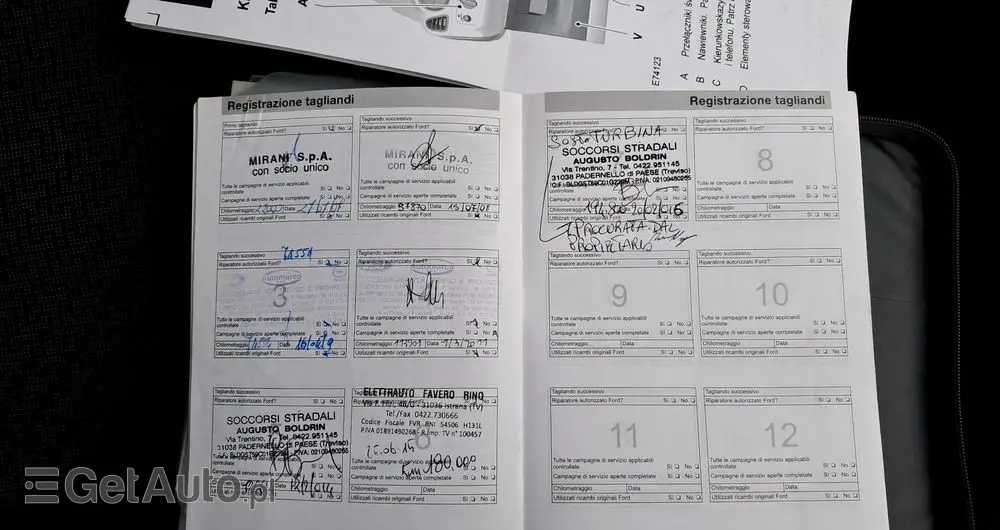 K
Ta
A
V
U
E74123
A Przełączniki ś
B Nawiewniki. P
C Kierunkowskazy
i telefonu. Patrz
D Elementy sterowa
Registrazione tagliandi
Primo tagliando
Riparatore autorizzato Ford? Sì No
MIRANI S.p.A.
con socio unico
Tutte le campagne di servizio applicabili
controllate Sì No
Campagne di servizio aperte completate Sì No
Chilometraggio Data
Utilizzati ricambi originali Ford Sì No
Tagliando successivo
Riparatore autorizzato Ford? Sì No
MIRANI S.p.A.
con socio unico
Tutte le campagne di servizio applicabili
controllate Sì No
Campagne di servizio aperte completate Sì No
Chilometraggio 57870 Data 15/07/08
Utilizzati ricambi originali Ford Sì No
Tagliando successivo
Riparatore autorizzato Ford? Sì No
Automarca
3
Tutte le campagne di servizio applicabili
controllate
Campagne di servizio aperte completate Sì No
Chilometraggio Data
Utilizzati ricambi originali Ford Sì No
Tagliando successivo
Riparatore autorizzato Ford? Sì No
Automarca
Tutte le campagne di servizio applicabili
controllate Sì No
Campagne di servizio aperte completate Sì No
Chilometraggio Data 1/3/2011
Utilizzati ricambi originali Ford Sì No
Tagliando successivo
Riparatore autorizzato Ford? Sì No
SOCCORSI STRADALI
AUGUSTO BOLDRIN
Via Trentino, 7 - Tel. 0422.951145
31038 PADERNELLO di PAESE (Treviso)
Campagne di servizio aperte completate Sì No
Chilometraggio Data
Utilizzati ricambi originali Ford Sì No
Tagliando successivo
ELETTRAUTO FAVERO RINO
31036 Istrana (TV)
Tel/Fax 0422.730666
Codice Fiscale FVR RNI 54S06 H131L
P.IVA 01891490268 - R.Imp. TV n° 100457
6
25.06.15
KM 180.000
Tutte le campagne di servizio applicabili
controllate
Campagne di servizio aperte completate Sì No
Chilometraggio Data
Utilizzati ricambi originali Ford Sì No
Registrazione tagliandi
Tagliando successivo
Riparatore autorizzato Ford? Sì No
TURBINA
SOCCORSI STRADALI
AUGUSTO BOLDRIN
Via Trentino, 7 - Tel. 0422.951145
31038 PADERNELLO di PAESE (Treviso)
P.IVA: 02109480265
PROCURATA DAL
Tagliando successivo
Riparatore autorizzato Ford? Sì No
8
Tutte le campagne di servizio applicabili
controllate Sì No
Campagne di servizio aperte completate Sì No
Chilometraggio Data
Utilizzati ricambi originali Ford Sì No
Tagliando successivo
Riparatore autorizzato Ford? Sì No
9
Tutte le campagne di servizio applicabili
controllate Sì No
Campagne di servizio aperte completate Sì No
Chilometraggio Data
Utilizzati ricambi originali Ford Sì No
Tagliando successivo
Riparatore autorizzato Ford? Sì No
10
Tutte le campagne di servizio applicabili
controllate Sì No
Campagne di servizio aperte completate Sì No
Chilometraggio Data
Utilizzati ricambi originali Ford Sì No
Tagliando successivo
Riparatore autorizzato Ford? Sì No
11
Tutte le campagne di servizio applicabili
controllate Sì No
Campagne di servizio aperte completate Sì No
Chilometraggio Data
Utilizzati ricambi originali Ford Sì No
Tagliando successivo
Riparatore autorizzato Ford? Sì No
12
Tutte le campagne di servizio applicabili
controllate Sì No
Campagne di servizio aperte completate Sì No
Chilometraggio Data
Utilizzati ricambi originali Ford Sì No
GetAuto.pl